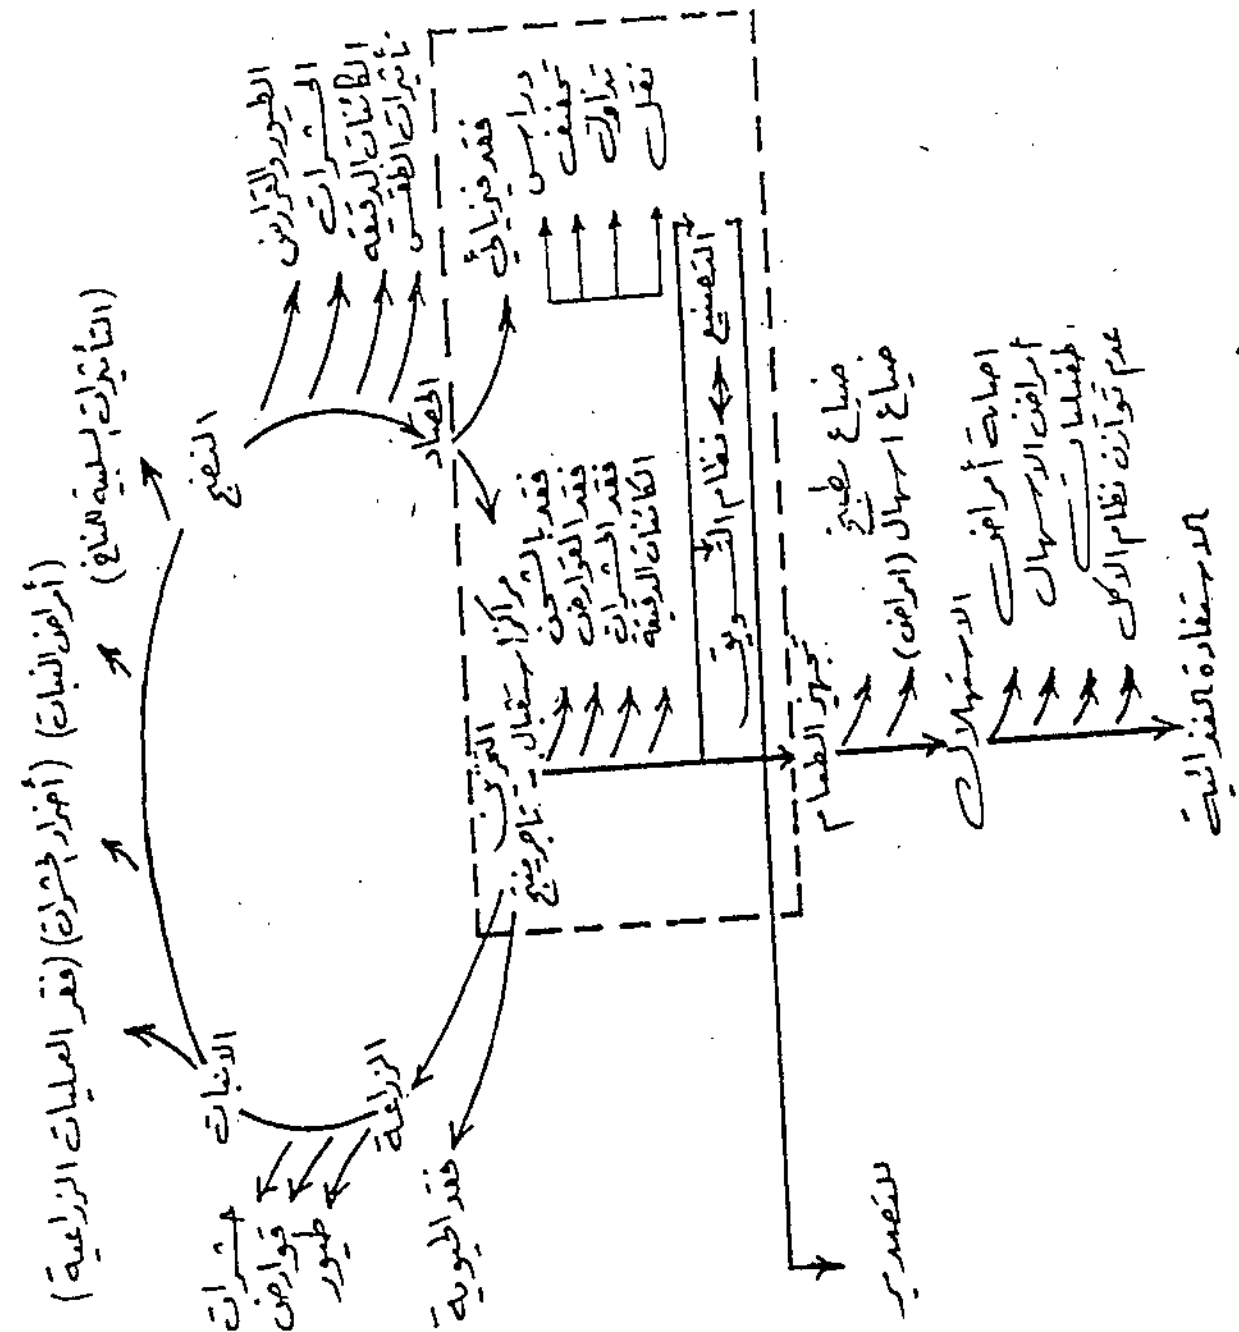 (فقد العمليات الزراعية) (أضرار الحشرات) (أمراض النبات)
(التأثيرات السلبية للمناخ)
الانبات
النضج
حشرات
قوارض
طيور
الزراعة
الطيور والقوارض
الحشرات
الكائنات الدقيقة
تأثيرات الطقس
الحصاد
فقد الحيوية
فقد فيزيائي
دراس
تجفيف
تداول
نقل
التخزين
مراكز استقبال - تاجر - منتج
فقد بالشحن
فقد القوارض
فقد الحشرات
الكائنات الدقيقة
التصنيع
نظام التسويق
تجهيز الطعام
ضياع طبخ
ضياع اسهال (امراض)
الاستهلاك
اصابة أمراض
أمراض الاسهال
طفيليات
عدم توازن نظام الاكل
الاستفادة الغذائية
للتصدير